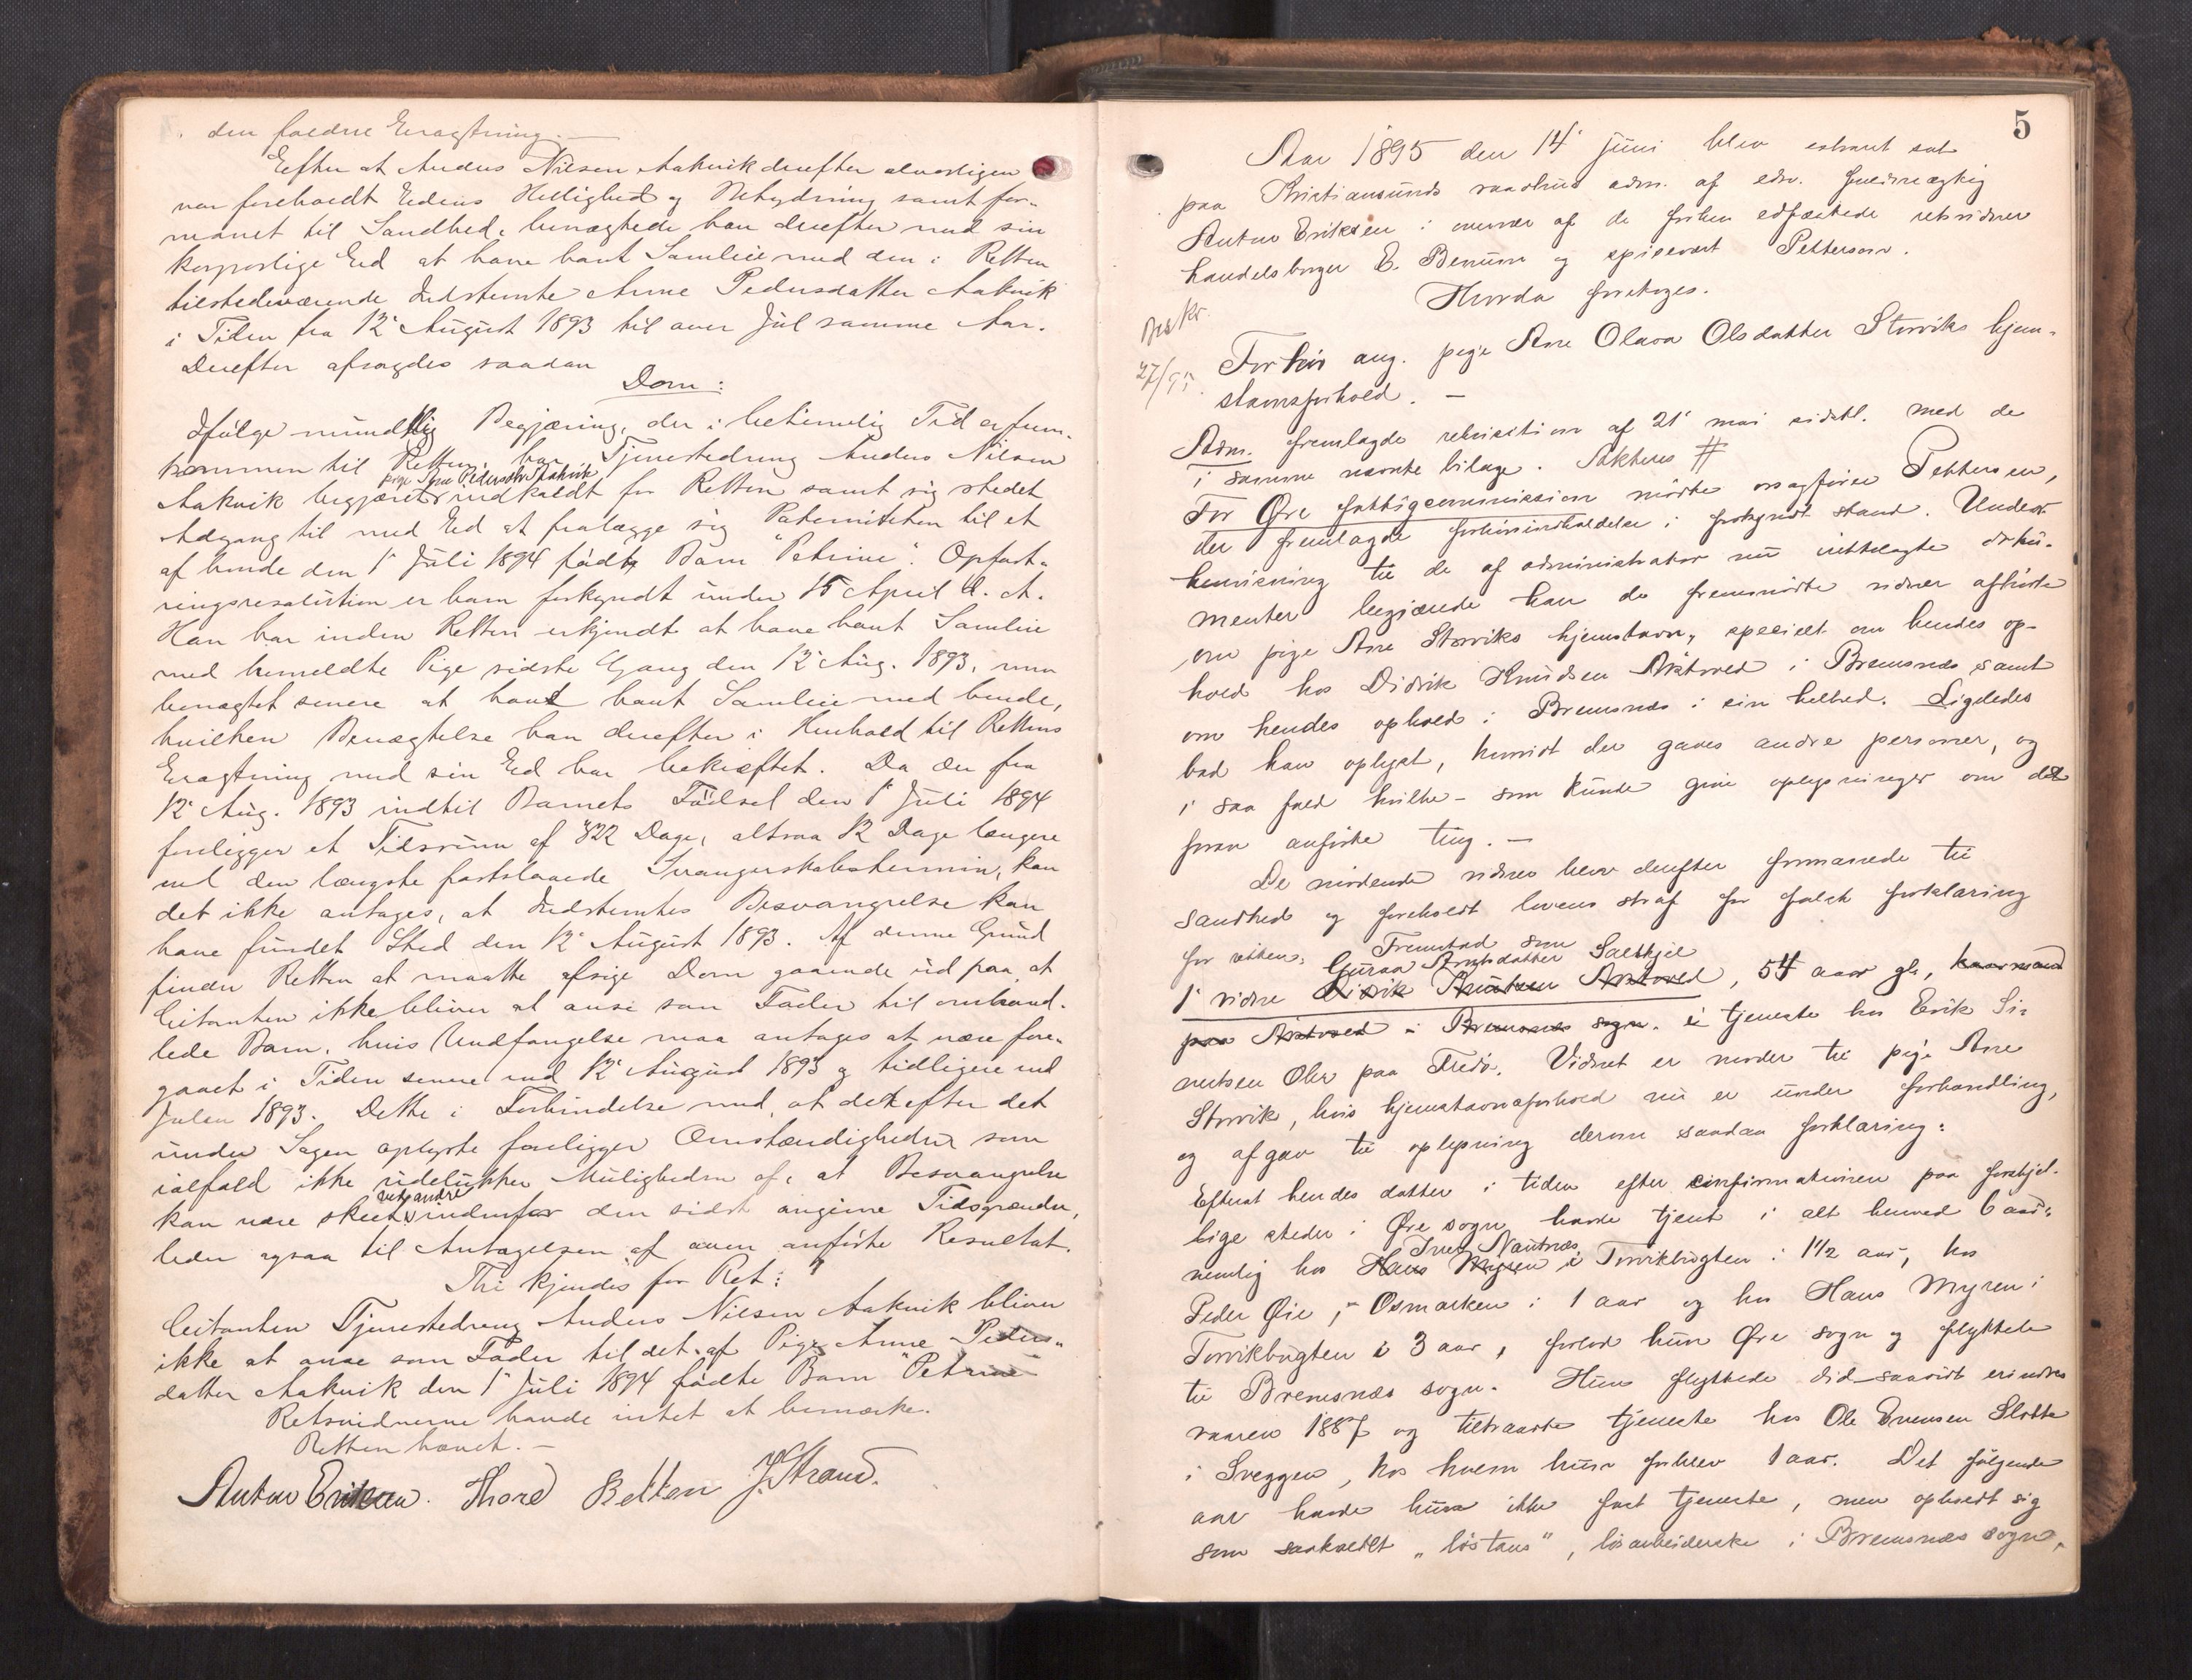 den faldne Eragtning. —
Efter at Anders Nilsen Aakvik derefter alvorligen
var foreholdt Edens Hellighed og Betydning samt for-
manet til Sandhed, benægtede han derefter med sin
korporlige Ed at have havt Samleie med den i Retten
tilstedeværende Indstevnte Anne Pedersdatter Aakvik
i Tiden fra 12' August 1893 til over Jul samme Aar.
Derefter afsagdes saadan
Dom:
Ifølge mundtlig Begjæring, der i betimelig Tid er frem-
kommen til Retten, har Tjenestedreng Anders Nilsen
Aakvik begjæret pige Ane Pedersdtr Aakvik indkaldt for Retten samt sig stedet
Adgang til med Ed at fralægge sig Paterniteten til et
af hende den 1' Juli 1894 født Barn "Petrine". Opfost-
ringsresolution er ham forkyndt under 15 April d. A.
Han har inden Retten erkjendt at have havt Samleie
med bemeldte Pige sidste Gang den 12' Aug. 1893, men
benægtet senere at have havt Samleie med hende,
hvilken Benægtelse han derefter i Henhold til Rettens
Eragtning med sin Ed har bekræftet. Da der fra
12' Aug. 1893 indtil Barnets Fødsel den 1' Juli 1894
foreligger et Tidsrum af 322 Dage, altsaa 12 Dage længere
end den længste fastslaaede Svangerskabstermin, kan
det ikke antages, at Indstevntes Besvangrelse kan
have fundet Sted den 12' August 1893. Af denne Grund
finder Retten at maatte afsige Dom gaaende ud paa, at
Citanten ikke bliver at anse som Fader til omhand-
lede Barn, hvis Undfangelse maa antages at være fore-
gaaet i Tiden senere end 12' August 1893 og tidligere end
Julen 1893. Dette i Forbindelse med, at det efter det
under Sagen oplyste foreligger Omstændigheder som
ialfald ikke udelukker Muligheden af, at Besvangrelse
kan være skeet ved andre indenfor den sidst angivne Tidsgrændse,
leder ogsaa til Antagelsen af oven anførte Resultat.
Thi kjendes for Ret:
Citanten Tjenestedreng Anders Nilsen Aakvik bliver
ikke at anse som Fader til det af Pige Anne Peders-
datter Aakvik den 1' Juli 1894 fødte Barn "Petrine"
Retsvidnerne havde intet at bemærke.
Retten hævet. —
Anton Eriksen. Thore Betten J. Strand.
5
Aar 1895 den 14' juni blev extraret sat
paa Kristiansunds raadhus adm. af edsv. fuldmægtig
Anton Eriksen i overvær af de forhen edfæstede retsvidner
handelsborger E. Benum og spisevert Petterson.
Hvorda foretoges.
Beskr.
27/95.
Forhør ang. pige Ane Olava Olsdatter Storviks hjem-
stavnsforhold. —
Adm. fremlagde rekvisition af 21' mai sidstl. med de
i samme nævnte bilage. Akteres #
For Øre fattigcommission mødte sagfører Pettersen,
der fremlagde forhørsindkaldelse i forkyndt stand. Under
henvisning til de af administrator nu fremlagte doku-
menter begjærede han de fremmødte vidner afhørte
om pige Ane Storviks hjemstavn, specielt om hendes op-
hold hos Didrik Knudsen Aastved i Bremsnæs samt
om hendes ophold i Bremsnæs i sin helhed. Ligeledes
bad han oplyst, hvorvidt der gaves andre personer, og
i saa fald hvilke – som kunde give oplysninger om det
foran anførte ting. —
De mødende vidner blev derefter formanede til
sandhed og foreholdt lovens straf for falsk forklaring
for retten. Fremstod som
1' vidne Didrik Knutsen Aastved Guraa Arntsdatter Saltkjel, 54 aar gl., kaarmand
paa Aastved i Bremsnæs sogn. i tjeneste hos Erik Si-
vertsen Oler paa Fredø. Vidnet er moder til pige Ane
Storvik, hvis hjemstavnsforhold nu er under forhandling,
og afgav til oplysning derom saadan forklaring:
Efterat hendes datter i tiden efter confirmationen paa forskjel-
lige steder i Øre sogn havde tjent i alt henved 6 aar,
nemlig hos Hans Myren i Torvikbugten i 1½ aar, hos
Peder Øie, i Osmarken i 1 aar og hos Hans Myren i
Torvikbugten i 3 aar, forlod hun Øre sogn og flyttede
til Bremsnæs sogn. Hun flyttede did saavidt erindres
vaaren 1887 og tiltraadte tjeneste hos Ole Evensen Slatte
i Sveggen, hos hvem hun forblev 1 aar. Det følgende
aar havde hun ikke fast tjeneste, men opholdt sig
som saakaldt „løstaus", løsarbeiderske i Bremsnæs sogn,